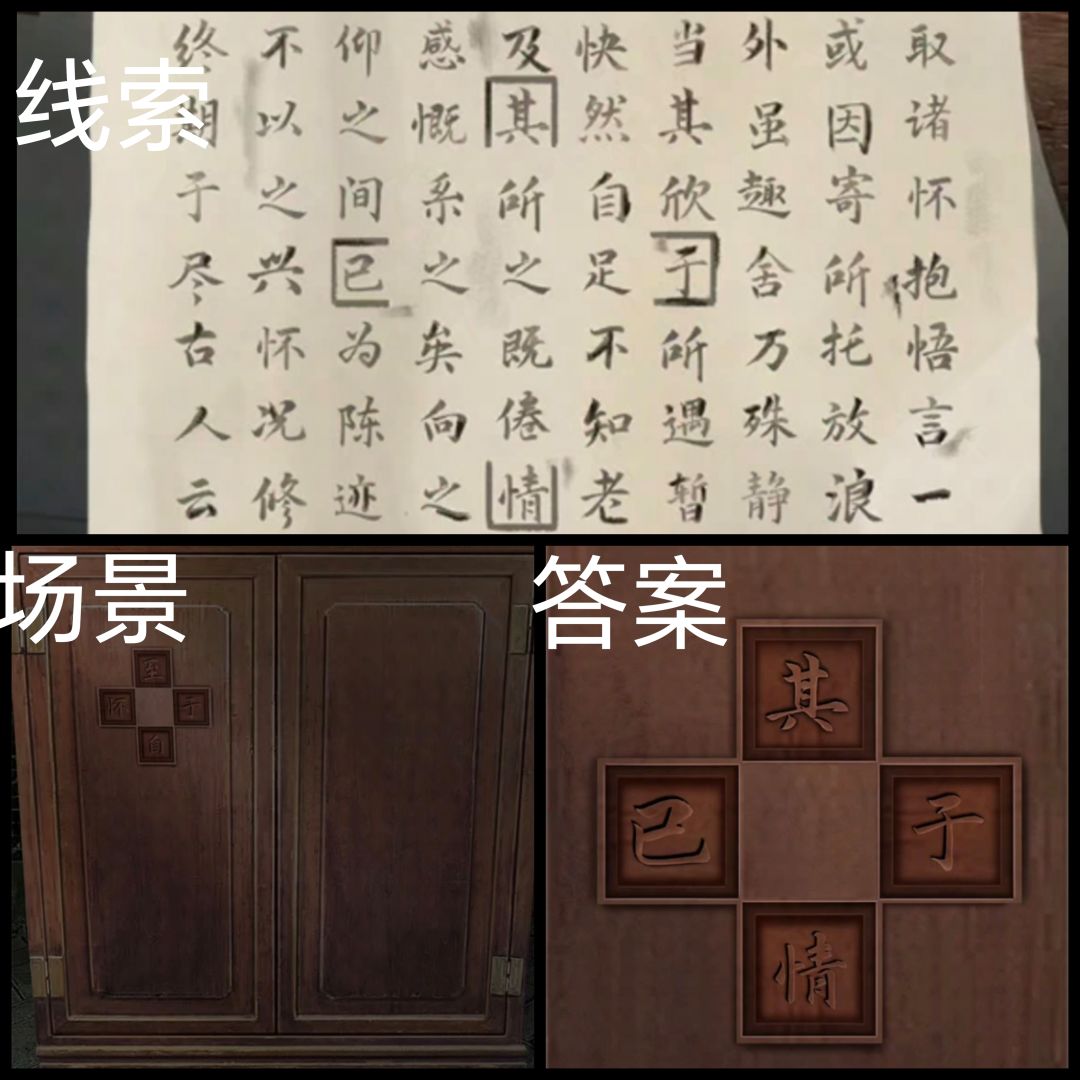 线索
取诸怀抱悟言一
或因寄所托放浪
外虽趣舍万殊静
当其欣于所遇暂
快然自足不知老
及其所之既倦情
感慨系之矣向之
仰之间已为陈迹
不以之兴怀况修
终期于尽古人云
场景
至
怀
于
自
答案
其
已
于
情